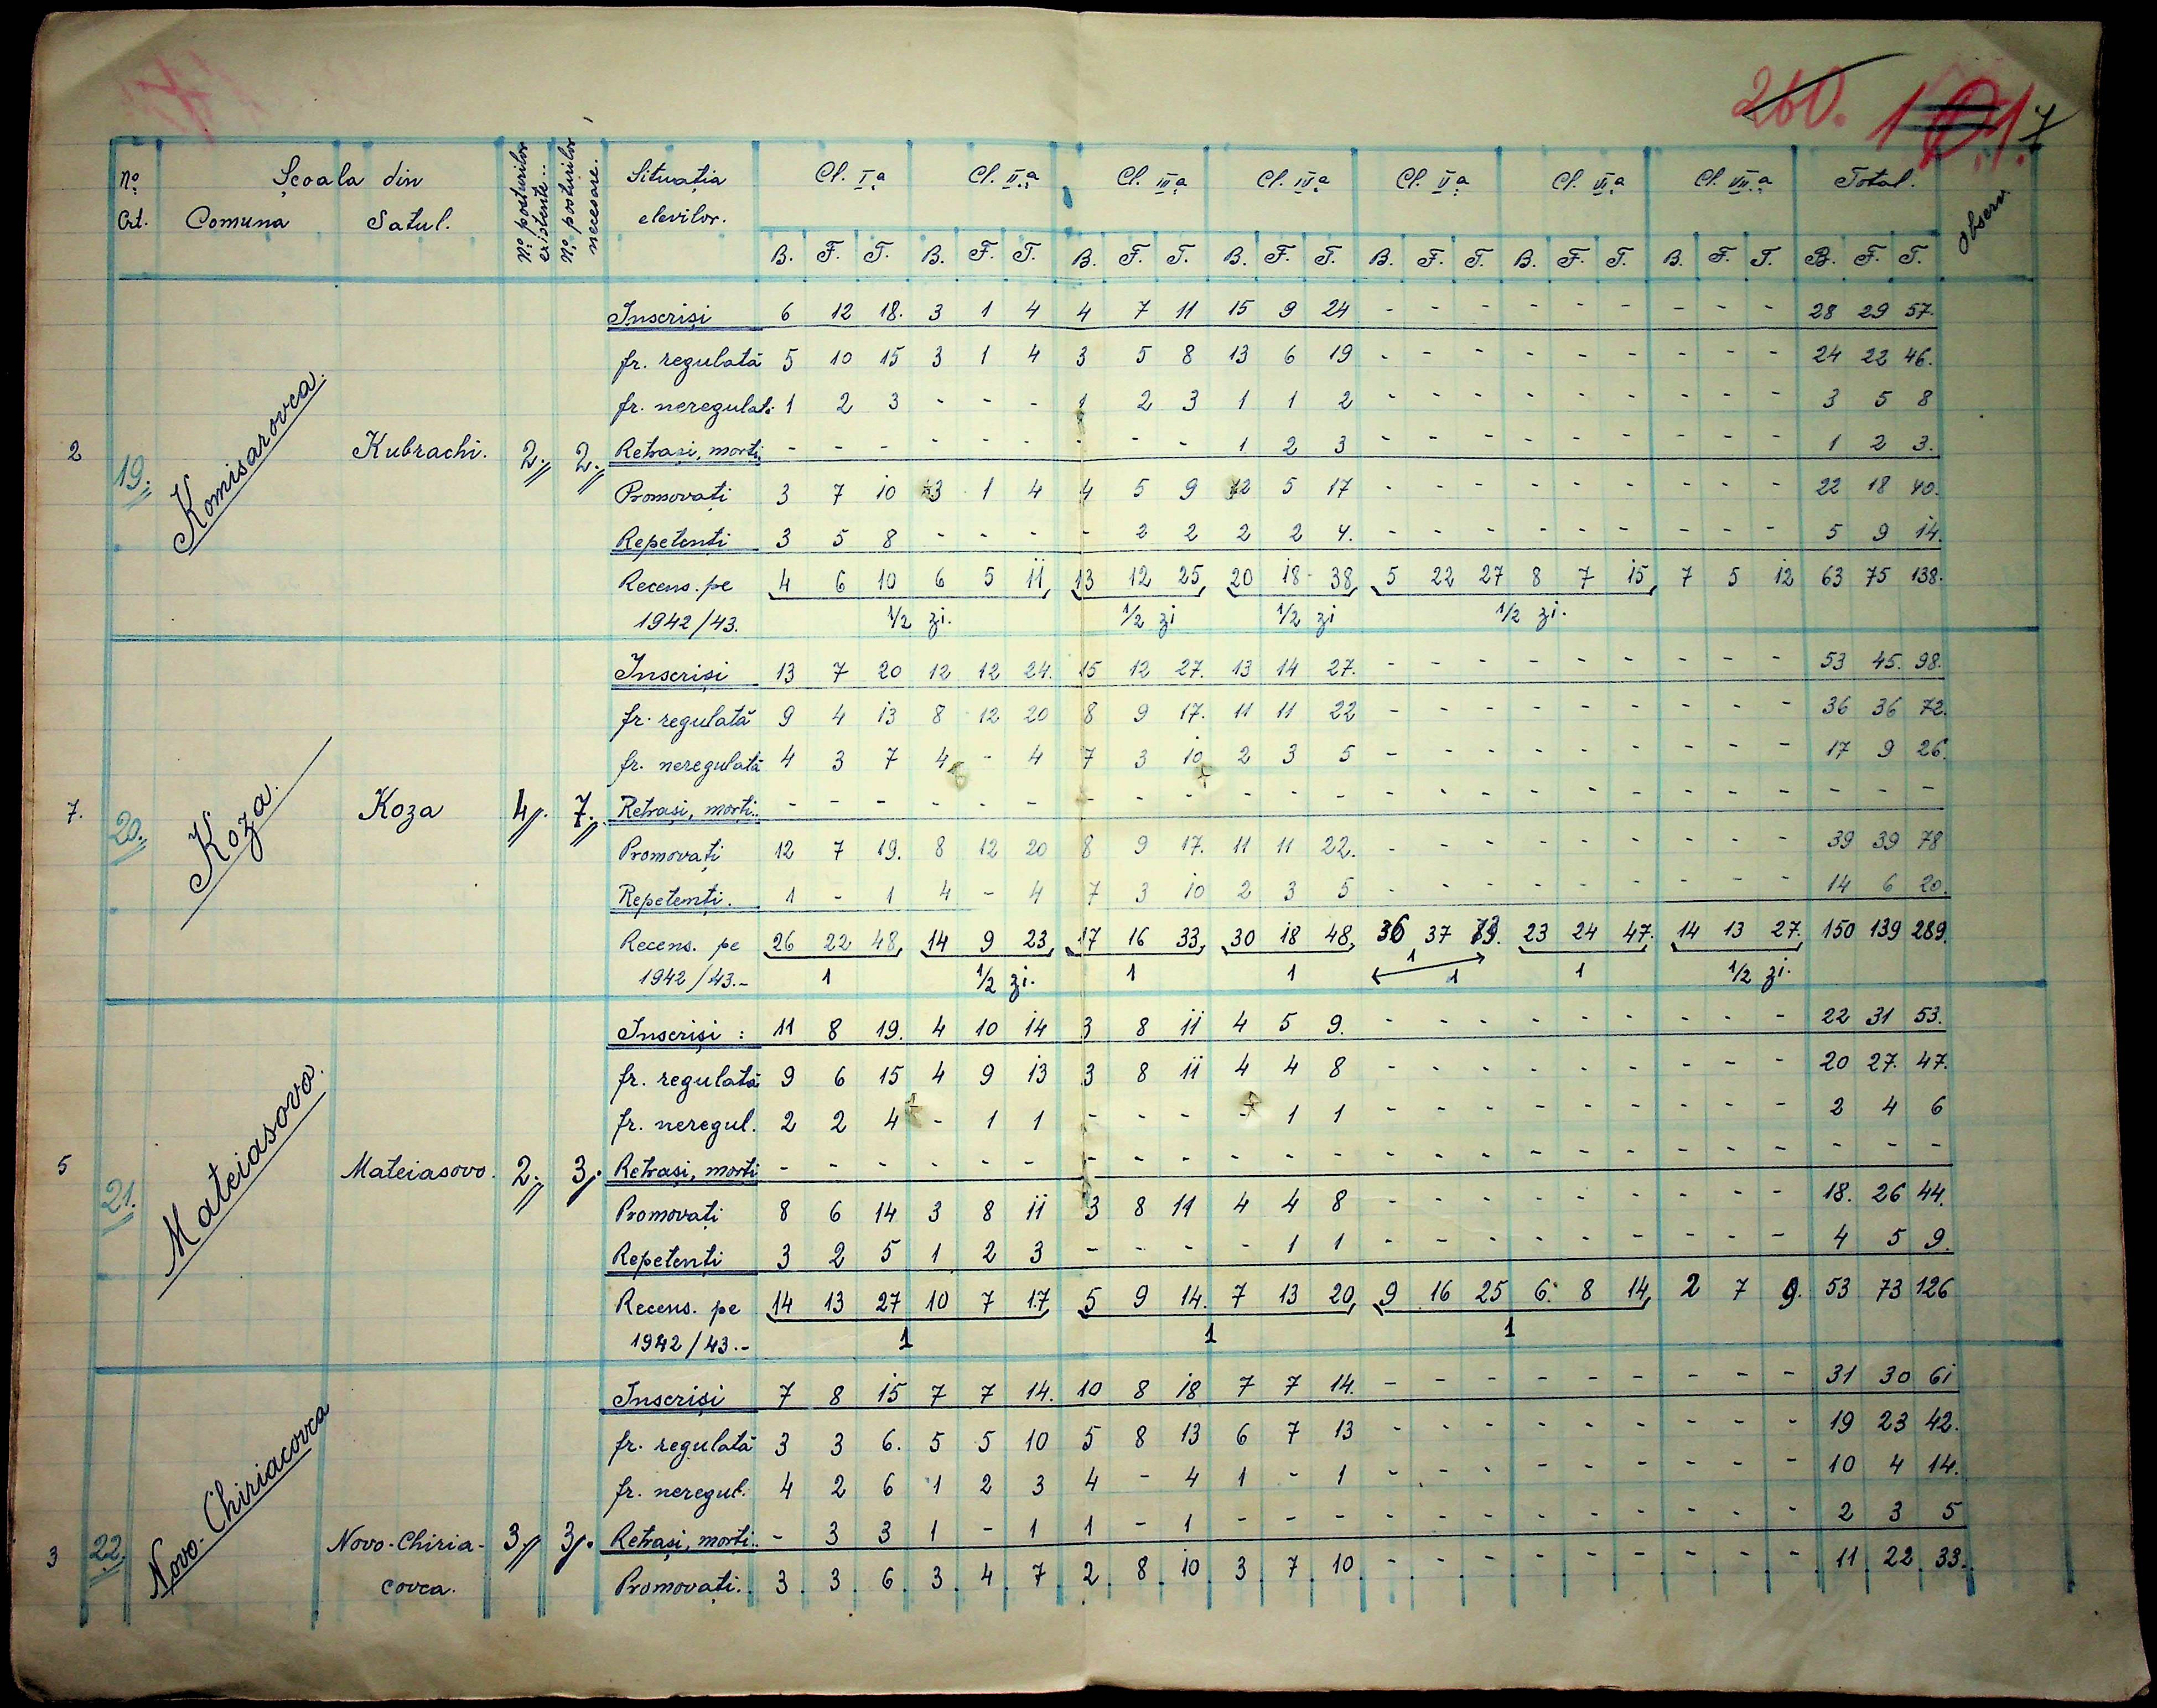 260. 101. 7
No Crt. Școala din Comuna Satul. No posturilor existente.. No posturilor necesare. Situația elevilor. Cl. I.a Cl. II.a Cl. III.a Cl. IV.a Cl. V.a Cl. VI.a Cl. VII.a Total. Observ.
B. F. T. B. F. T. B. F. T. B. F. T. B. F. T. B. F. T. B. F. T. B. F. T.
Inscriși 6 12 18. 3 1 4 4 7 11 15 9 24 - - - - - - - - - 28 29 57.
fr. regulată 5 10 15 3 1 4 3 5 8 13 6 19 - - - - - - - - - 24 22 46.
fr. neregulat. 1 2 3 - - - 1 2 3 1 1 2 - - - - - - - - - 3 5 8
2 19. Komisarovca. Kubrachi. 2. 2. Retrași, morți. - - - - - - - - - 1 2 3 - - - - - - - - - 1 2 3.
Promovați 3 7 10 3 1 4 4 5 9 12 5 17 - - - - - - - - - 22 18 40.
Repetenți 3 5 8 - - - - 2 2 2 2 4. - - - - - - - - - 5 9 14.
Recens. pe 4 6 10 6 5 11 13 12 25 20 18 38 5 22 27 8 7 15 7 5 12 63 75 138.
1942/43. 1/2 zi. 1/2 zi 1/2 zi 1/2 zi.
Inscriși 13 7 20 12 12 24. 15 12 27. 13 14 27. - - - - - - - - - 53 45. 98.
fr. regulată 9 4 13 8 12 20 8 9 17. 11 11 22 - - - - - - - - - 36 36 72.
fr. neregulată 4 3 7 4 - 4 7 3 10 2 3 5 - - - - - - - - - 17 9 26.
7. 20. Koza. Koza 4. 7. Retrași, morți.. - - - - - - - - - - - - - - - - - - - - - - - -
Promovați 12 7 19. 8 12 20 8 9 17. 11 11 22. - - - - - - - - - 39 39 78
Repetenți. 1 - 1 4 - 4 7 3 10 2 3 5 - - - - - - - - - 14 6 20.
Recens. pe 26 22 48 14 9 23 17 16 33 30 18 48 36 37 73. 23 24 47. 14 13 27. 150 139 289.
1942/43.- 1 1/2 zi. 1 1 1 1 1 1/2 zi.
Inscriși : 11 8 19. 4 10 14 3 8 11 4 5 9. - - - - - - - - - 22 31 53.
fr. regulată 9 6 15 4 9 13 3 8 11 4 4 8 - - - - - - - - - 20 27. 47.
fr. neregul. 2 2 4 - 1 1 - - - - 1 1 - - - - - - - - - 2 4 6
5 21. Mateiasovo. Mateiasovo. 2. 3. Retrași, morți - - - - - - - - - - - - - - - - - - - - - - - -
Promovați 8 6 14 3 8 11 3 8 11 4 4 8 - - - - - - - - - 18. 26 44.
Repetenți 3 2 5 1 2 3 - - - - 1 1 - - - - - - - - - 4 5 9.
Recens. pe 14 13 27 10 7 17 5 9 14. 7 13 20 9 16 25 6. 8 14 2 7 9. 53 73 126
1942/43.- 1 1 1
Inscriși 7 8 15 7 7 14. 10 8 18 7 7 14. - - - - - - - - - 31 30 61
fr. regulată 3 3 6. 5 5 10 5 8 13 6 7 13 - - - - - - - - - 19 23 42.
fr. neregul. 4 2 6 1 2 3 4 - 4 1 - 1 - - - - - - - - - 10 4 14.
3 22. Novo-Chiriacovca Novo-Chiria- 3. 3. Retrași, morți.. - 3 3 1 - 1 1 - 1 - - - - - - - - - - - - 2 3 5
covca. Promovați.. 3 3 6 3 4 7 2 8 10 3 7 10 - - - - - - - - - 11 22 33.